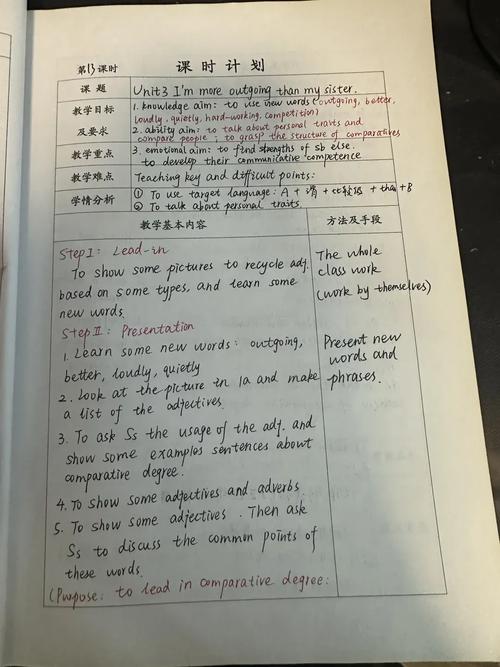 第13课时 课时计划
课题 Unit3 I'm more outgoing than my sister.
教学目标 1. knowledge aim: to use new words (outgoing, better,
loudly, quietly, hard-working, competition)
及要求 2. ability aim: to talk about personal traits and
compare people; to grasp the structure of comparatives
教学重点 3. emotional aim: to find strengths of sb else.
to develop their communicative competence
教学难点 Teaching key and difficult points:
学情分析 ① To use target language: A + 谓 + 比较级 + than + B
② To talk about personal traits.
教学基本内容 方法及手段
Step I: Lead-in
To show some pictures to recycle adj.
based on some types, and learn some
new words.
Step II: Presentation
1. Learn some new words: outgoing,
better, loudly, quietly
2. Look at the picture in 1a and make
a list of the adjectives
3. To ask Ss the usage of the adj. and
show some examples sentences about
comparative degree.
4. To show some adjectives and adverbs.
5. To show some adjectives. Then ask
Ss to discuss the common points of
these words.
(Purpose: to lead in comparative degree:
The whole
class work
(work by themselves)
Present new
words and
phrases.